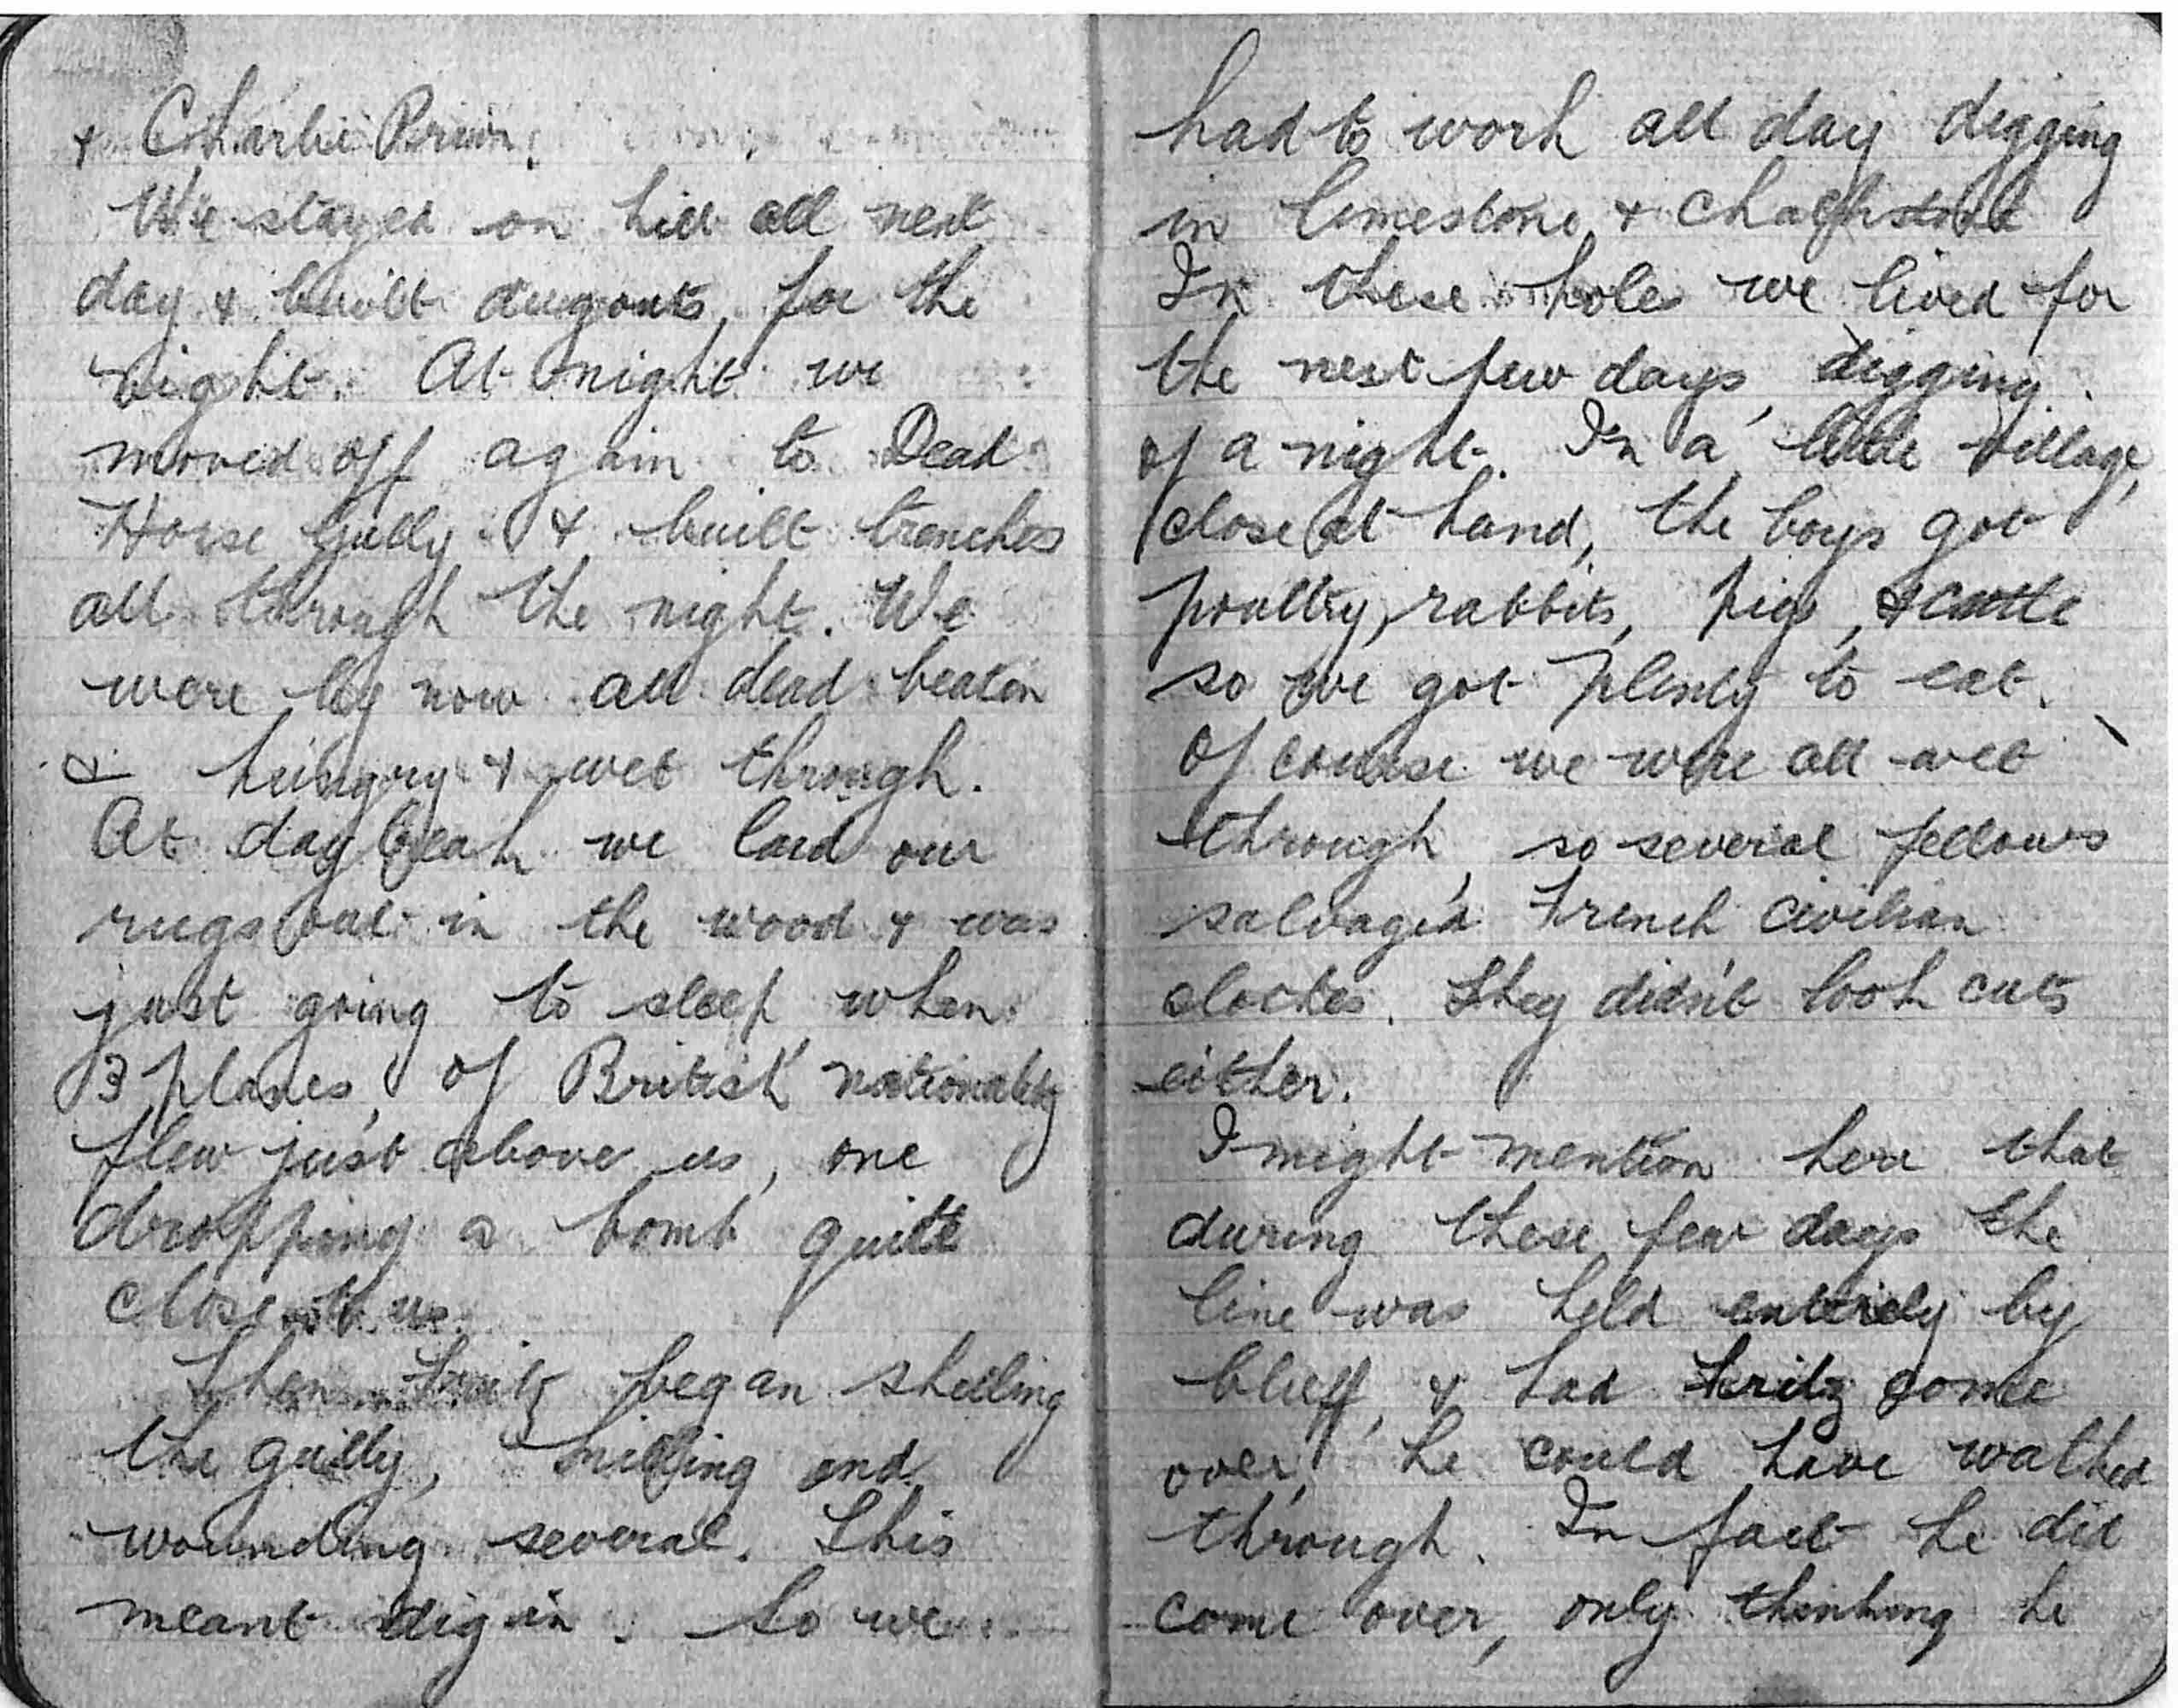 + Charlie Brown.
We stayed on hill all next
day + built dugouts, for the
night. At night we
moved off again to Dead
Horse Gully & + built trenches
all through the night. We
were by now all dead beaton
& hungry + wet through.
At daybeak we laid our
rugs out in the wood + was
just going to sleep, when
3 planes, of British nationality
flew just above us, one
dropping a bomb quite
close to us.
Then Fritz began shelling
the gully, killing and
wounding several. This
meant dig in. So we
had to work all day digging
in limestone, + chalkstone
In these holes we lived for
the next few days, digging
of a night. In a little village,
close at hand, the boys got
poultry, rabbits, pigs, & cattle
so we got plenty to eat.
Of course we were all wet
through, so several fellows
salvaged French civilian
clothes. They didn't look cuts
either.
I might mention here that
during these few days the
line was held entirely by
bluff, + had Fritz come
over, he could have walked
through. In fact he did
come over, only thinking he